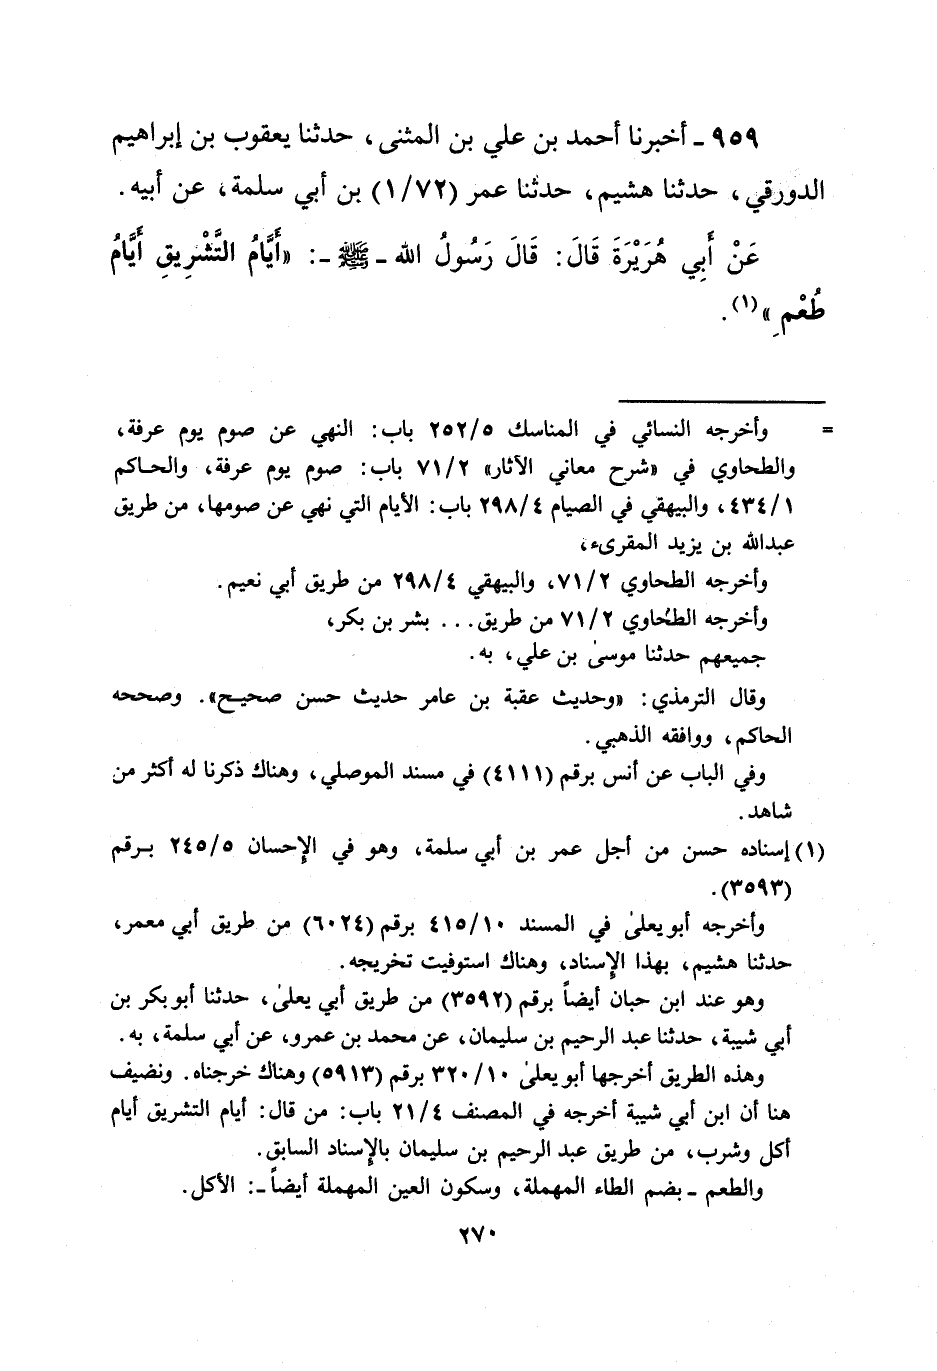 ٩٥٩ ـ أخبرنا أحمد بن علي بن المثنى، حدثنا يعقوب بن إبراهيم
الدورقي، حدثنا هشيم، حدثنا عمر (١/٧٢) بن أبي سلمة، عن أبيه.
عَنْ أَبِي هُرَيْرَةَ قَالَ: قَالَ رَسُولُ الله ـ ﷺ ـ: «أَيَّامُ التَّشْرِيقِ أَيَّامُ
طُعْمٍ»(١).
= وأخرجه النسائي في المناسك ٢٥٢/٥ باب: النهي عن صوم يوم عرفة،
والطحاوي في «شرح معاني الآثار» ٧١/٢ باب: صوم يوم عرفة، والحاكم
٤٣٤/١، والبيهقي في الصيام ٢٩٨/٤ باب: الأيام التي نهي عن صومها، من طريق
عبدالله بن يزيد المقرىء،
وأخرجه الطحاوي ٧١/٢، والبيهقي ٢٩٨/٤ من طريق أبي نعيم.
وأخرجه الطحاوي ٧١/٢ من طريق... بشر بن بكر،
جميعهم حدثنا موسىٰ بن علي، به.
وقال الترمذي: «وحديث عقبة بن عامر حديث حسن صحيح». وصححه
الحاكم، ووافقه الذهبي.
وفي الباب عن أنس برقم (٤١١١) في مسند الموصلي، وهناك ذكرنا له أكثر من
شاهد.
(١) إسناده حسن من أجل عمر بن أبي سلمة، وهو في الإحسان ٢٤٥/٥ برقم
(٣٥٩٣).
وأخرجه أبو يعلىٰ في المسند ٤١٥/١٠ برقم (٦٠٢٤) من طريق أبي معمر،
حدثنا هشيم، بهذا الإسناد، وهناك استوفيت تخريجه.
وهو عند ابن حبان أيضاً برقم (٣٥٩٢) من طريق أبي يعلىٰ، حدثنا أبو بكر بن
أبي شيبة، حدثنا عبد الرحيم بن سليمان، عن محمد بن عمرو، عن أبي سلمة، به.
وهذه الطريق أخرجها أبو يعلىٰ ٣٢٠/١٠ برقم (٥٩١٣) وهناك خرجناه. ونضيف
هنا أن ابن أبي شيبة أخرجه في المصنف ٢١/٤ باب: من قال: أيام التشريق أيام
أكل وشرب، من طريق عبد الرحيم بن سليمان بالإسناد السابق.
والطعم ـ بضم الطاء المهملة، وسكون العين المهملة أيضاً ـ: الأكل.
٢٧٠